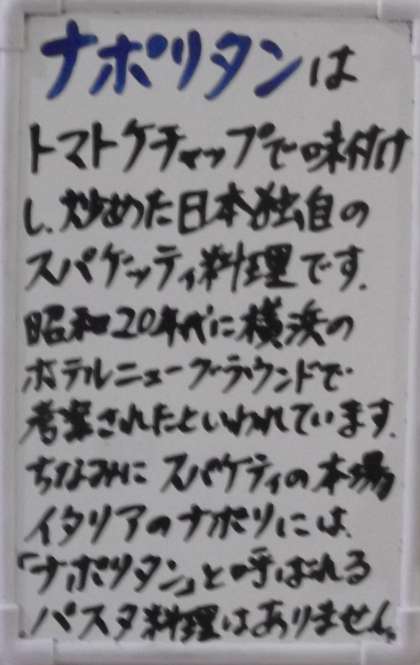 ナポリタンは
トマトケチャップで味付け
し、炒めた日本独自の
スパゲッティ料理です。
昭和20年代に横浜の
ホテルニューグランドで
考案されたといわれています。
ちなみにスパゲティの本場
イタリアのナポリには、
「ナポリタン」と呼ばれる
パスタ料理はありません。